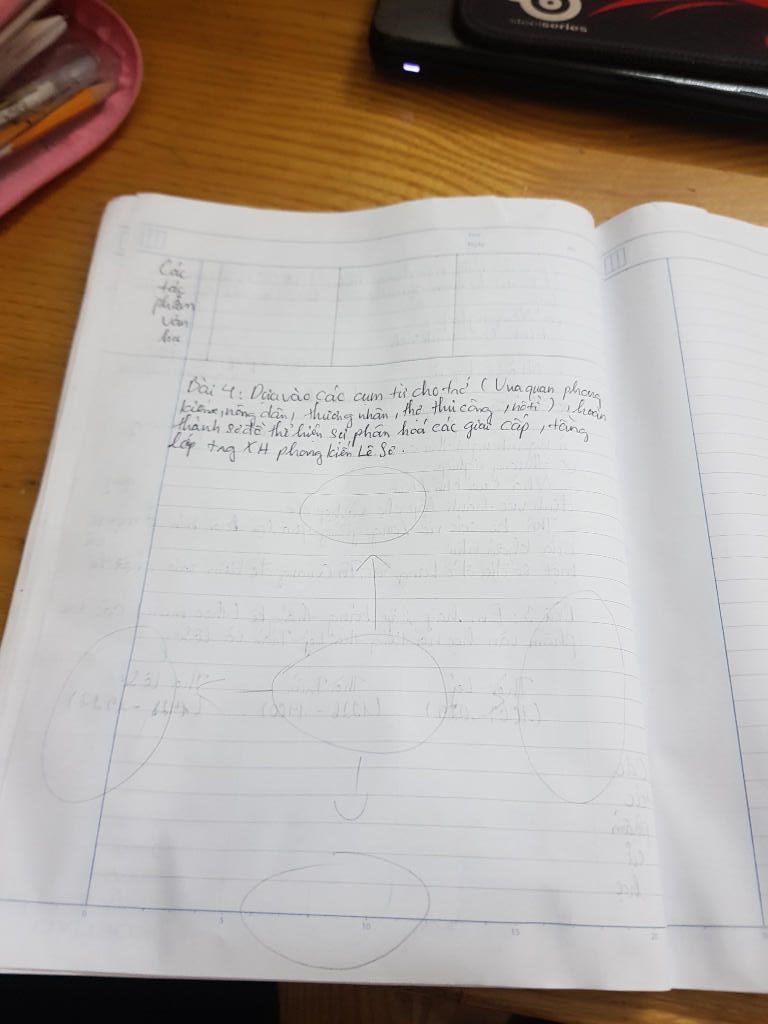 steelseries
Các
tác
phẩm
văn
học
Bài 4: Dựa vào các cụm từ cho trc (Vua quan phong
kiến, nông dân, thương nhân, thợ thủ công, nô tì), hoàn
thành sơ đồ thể hiện sự phân hoá các giai cấp, tầng
lớp trg XH phong kiến Lê Sơ.
0 5 10 15 20